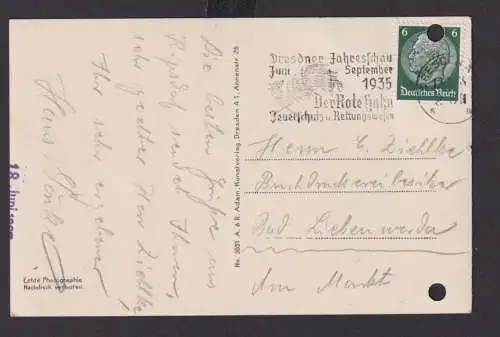 Die besten Grüße aus
Kipsdorf sendet Ihnen,
sehr geehrter Herr Zichlke
Ihr sehr ergebener
Hans
18. Juni 1935
Echte Photographie
Nachdruck verboten
No. 3603 A. & R. Adam, Kunstverlag, Dresden A 1, Ammonstr. 26
Dresdner Jahresschau
Juni September
1935
Der Rote Hahn
Feuerschutz u. Rettungswesen
6 6
Deutsches Reich
Herrn E. Zichlke
Buchdruckereibesitzer
Bad Liebenwerda
Am Markt